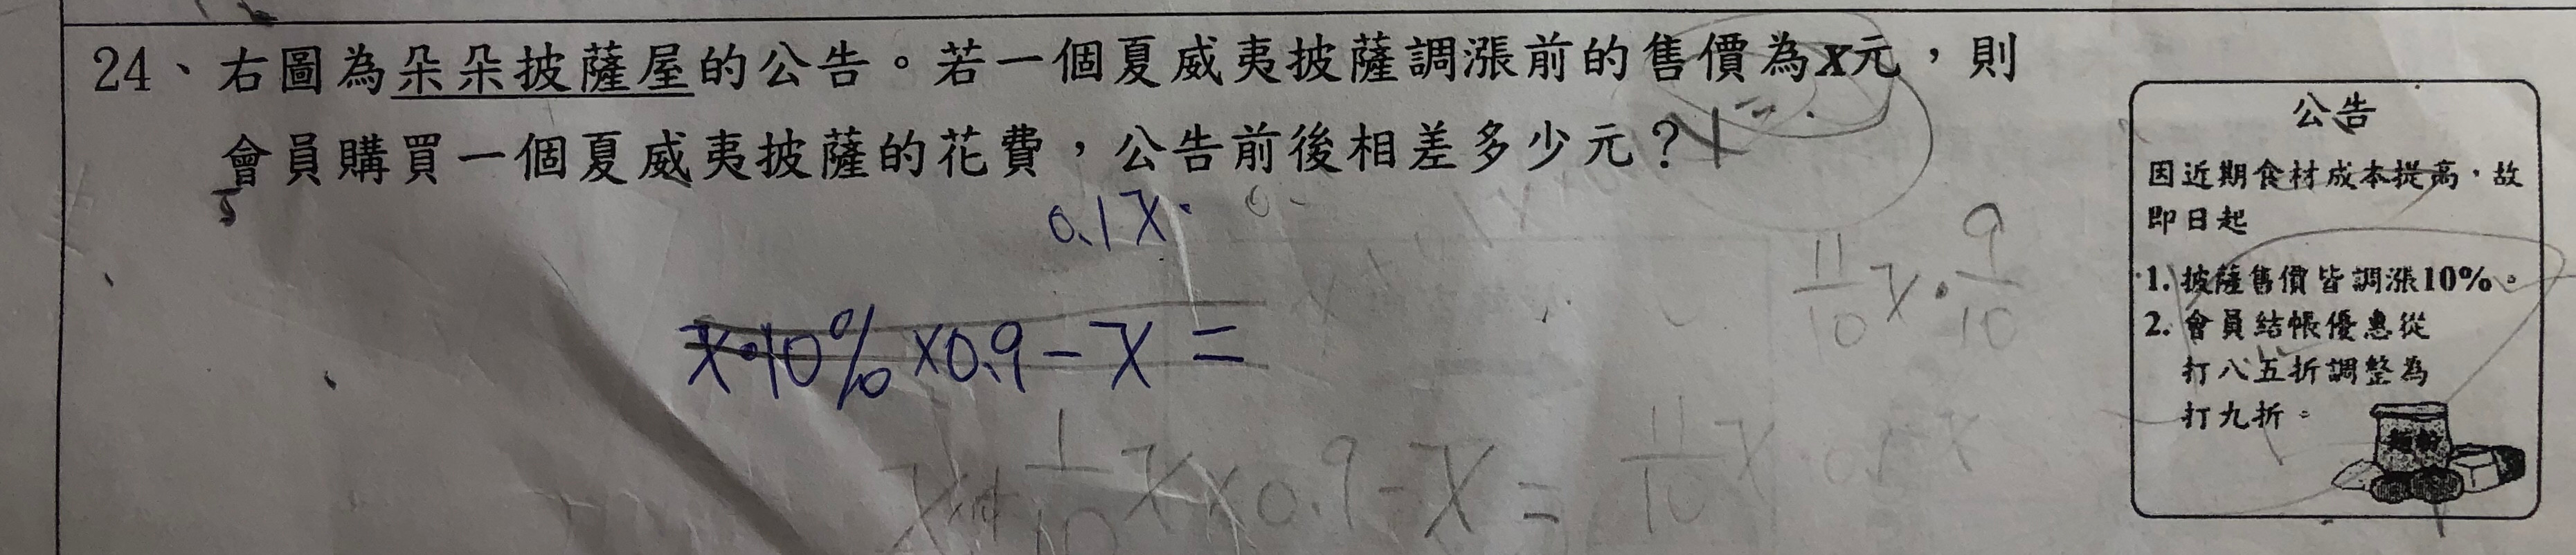 24、右圖為朵朵披薩屋的公告。若一個夏威夷披薩調漲前的售價為x元，則
會員購買一個夏威夷披薩的花費，公告前後相差多少元？
0.1x
x·10%×0.9-x=
11/10 x · 9/10
1/10 x×0.9-x= 11/10 x
公告
因近期食材成本提高，故
即日起
1. 披薩售價皆調漲10%。
2. 會員結帳優惠從
打八五折調整為
打九折。